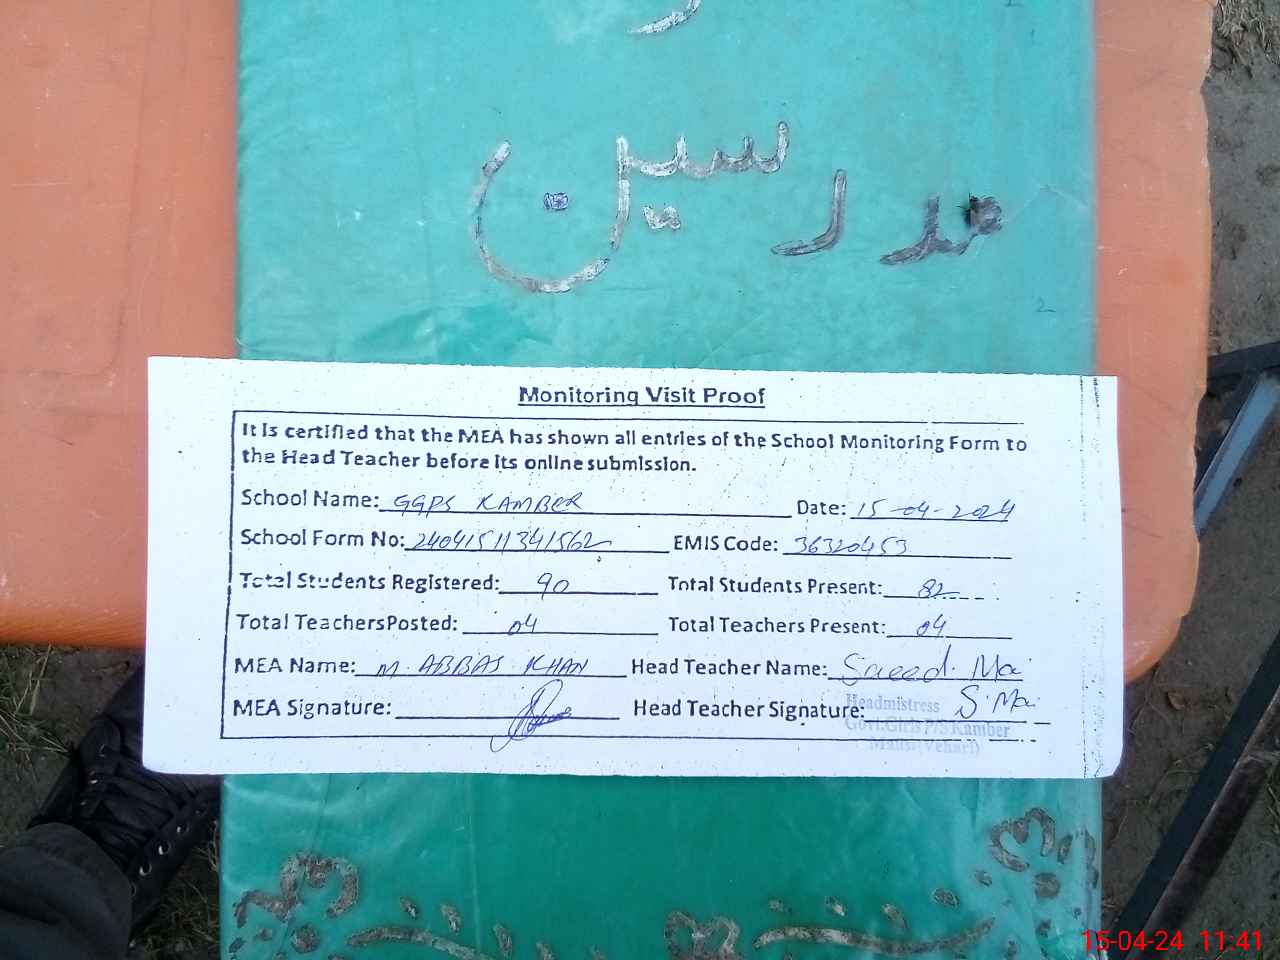 مدرسین
Monitoring Visit Proof
It is certified that the MEA has shown all entries of the School Monitoring Form to
the Head Teacher before its online submission.
School Name: GGPS KAMBER Date: 15-04-2024
School Form No: 24041511341562 EMIS Code: 36320453
Total Students Registered: 90 Total Students Present: 82
Total Teachers Posted: 04 Total Teachers Present: 04
MEA Name: M. ABBAS KHAN Head Teacher Name: Saeed. Mai
MEA Signature: Head Teacher Signature: S. Mai
Headmistress
Govt.Girls P/S Kamber
Mailsi(Vehari)
15-04-24 11:41